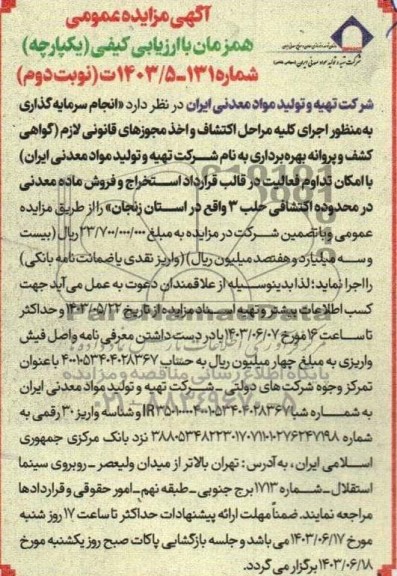 آگهی مزایده عمومی
همزمان با ارزیابی کیفی (یکپارچه)
شماره ۱۳۱-۱۴۰۳/۵ت (نوبت دوم)
شرکت تهیه و تولید مواد معدنی ایران
شرکت تهیه و تولید مواد معدنی ایران در نظر دارد «انجام سرمایه گذاری
به منظور اجرای کلیه مراحل اکتشاف و اخذ مجوزهای قانونی لازم (گواهی
کشف و پروانه بهره برداری به نام شرکت تهیه و تولید مواد معدنی ایران)
با امکان تداوم فعالیت در قالب قرارداد استخراج و فروش ماده معدنی
در محدوده اکتشافی حلب ۳ واقع در استان زنجان» را از طریق مزایده
عمومی و با تضمین شرکت در مزایده به مبلغ ۲۳/۷۰۰/۰۰۰/۰۰۰ ریال (بیست
و سه میلیارد و هفتصد میلیون ریال) (واریز نقدی یا ضمانت نامه بانکی)
را اجرا نماید؛ لذا بدینوسیله از علاقمندان دعوت به عمل می آید جهت
کسب اطلاعات بیشتر و تهیه اسناد مزایده از تاریخ ۱۴۰۳/۰۵/۲۲ و حداکثر
تا ساعت ۱۶ مورخ ۱۴۰۳/۰۶/۰۷ با در دست داشتن معرفی نامه و اصل فیش
واریزی به مبلغ چهار میلیون ریال به حساب ۴۰۰۱۰۵۳۴۰۴۰۲۸۳۶۷ با عنوان
تمرکز وجوه شرکت های دولتی - شرکت تهیه و تولید مواد معدنی ایران
به شماره شبا و شناسه واریز ۳۰ رقمی به
شماره ۳۸۸۰۵۳۴۸۲۲۳۰۱۷۰۷۱۱۰۱۰۲۷۶۲۴۷۱۹۸ نزد بانک مرکزی جمهوری
اسلامی ایران، به آدرس: تهران بالاتر از میدان ولیعصر - روبروی سینما
استقلال - شماره ۱۷۱۳ برج جنوبی - طبقه نهم - امور حقوقی و قراردادها
مراجعه نمایند. ضمناً مهلت ارائه پیشنهادات حداکثر تا ساعت ۱۷ روز شنبه
مورخ ۱۴۰۳/۰۶/۱۷ می باشد و جلسه بازگشایی پاکات صبح روز یکشنبه مورخ
۱۴۰۳/۰۶/۱۸ برگزار می گردد.
ParsNamadData
پایگاه اطلاع رسانی مناقصه و مزایده
۰۲۱-۸۸۳۴۹۶۷۰-۵